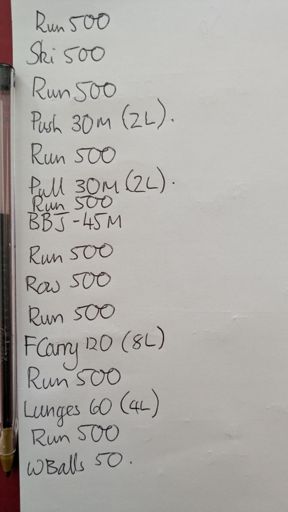 Run 500
Ski 500
Run 500
Push 30M (2L).
Run 500
Pull 30M (2L).
Run 500
BBJ - 45M
Run 500
Row 500
Run 500
FCarry 120 (8L)
Run 500
Lunges 60 (4L)
Run 500
WBalls 50.